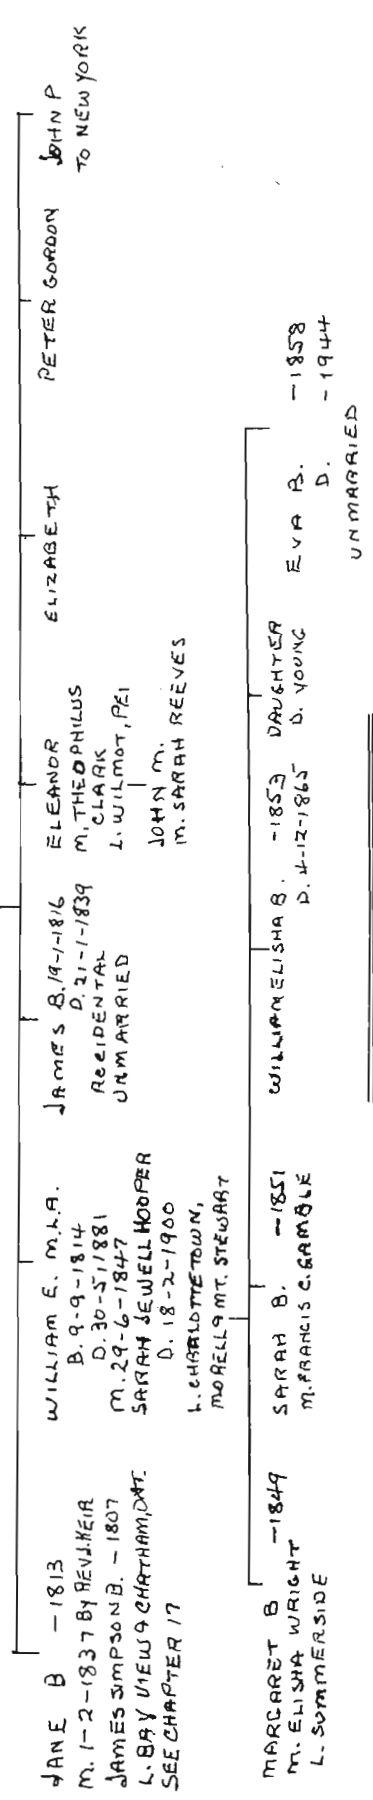 JANE B -1813
M. 1-2-1837 BY REV J. KEIR
JAMES SIMPSON B. -1807
L. BAY VIEW & CHATHAM, ONT.
SEE CHAPTER 17
WILLIAM E. M.L.A.
B. 9-9-1814
D. 30-5-1881
M. 29-6-1847
SARAH JEWELL HOOPER
D. 18-2-1900
L. CHARLOTTETOWN,
MORELL & MT. STEWART
JAMES B. 19-1-1816
D. 21-1-1839
ACCIDENTAL
UNMARRIED
ELEANOR
M. THEOPHILUS
CLARK
L. WILMOT, PEI
JOHN M.
M. SARAH REEVES
ELIZABETH
PETER GORDON
JOHN P
TO NEW YORK
MARGARET B -1849
M. ELISHA WRIGHT
L. SUMMERSIDE
SARAH B. -1851
M. FRANCIS C. GAMBLE
WILLIAM ELISHA B. -1853
D. 4-12-1865
DAUGHTER
D. YOUNG
EVA B. -1858
D. -1944
UNMARRIED